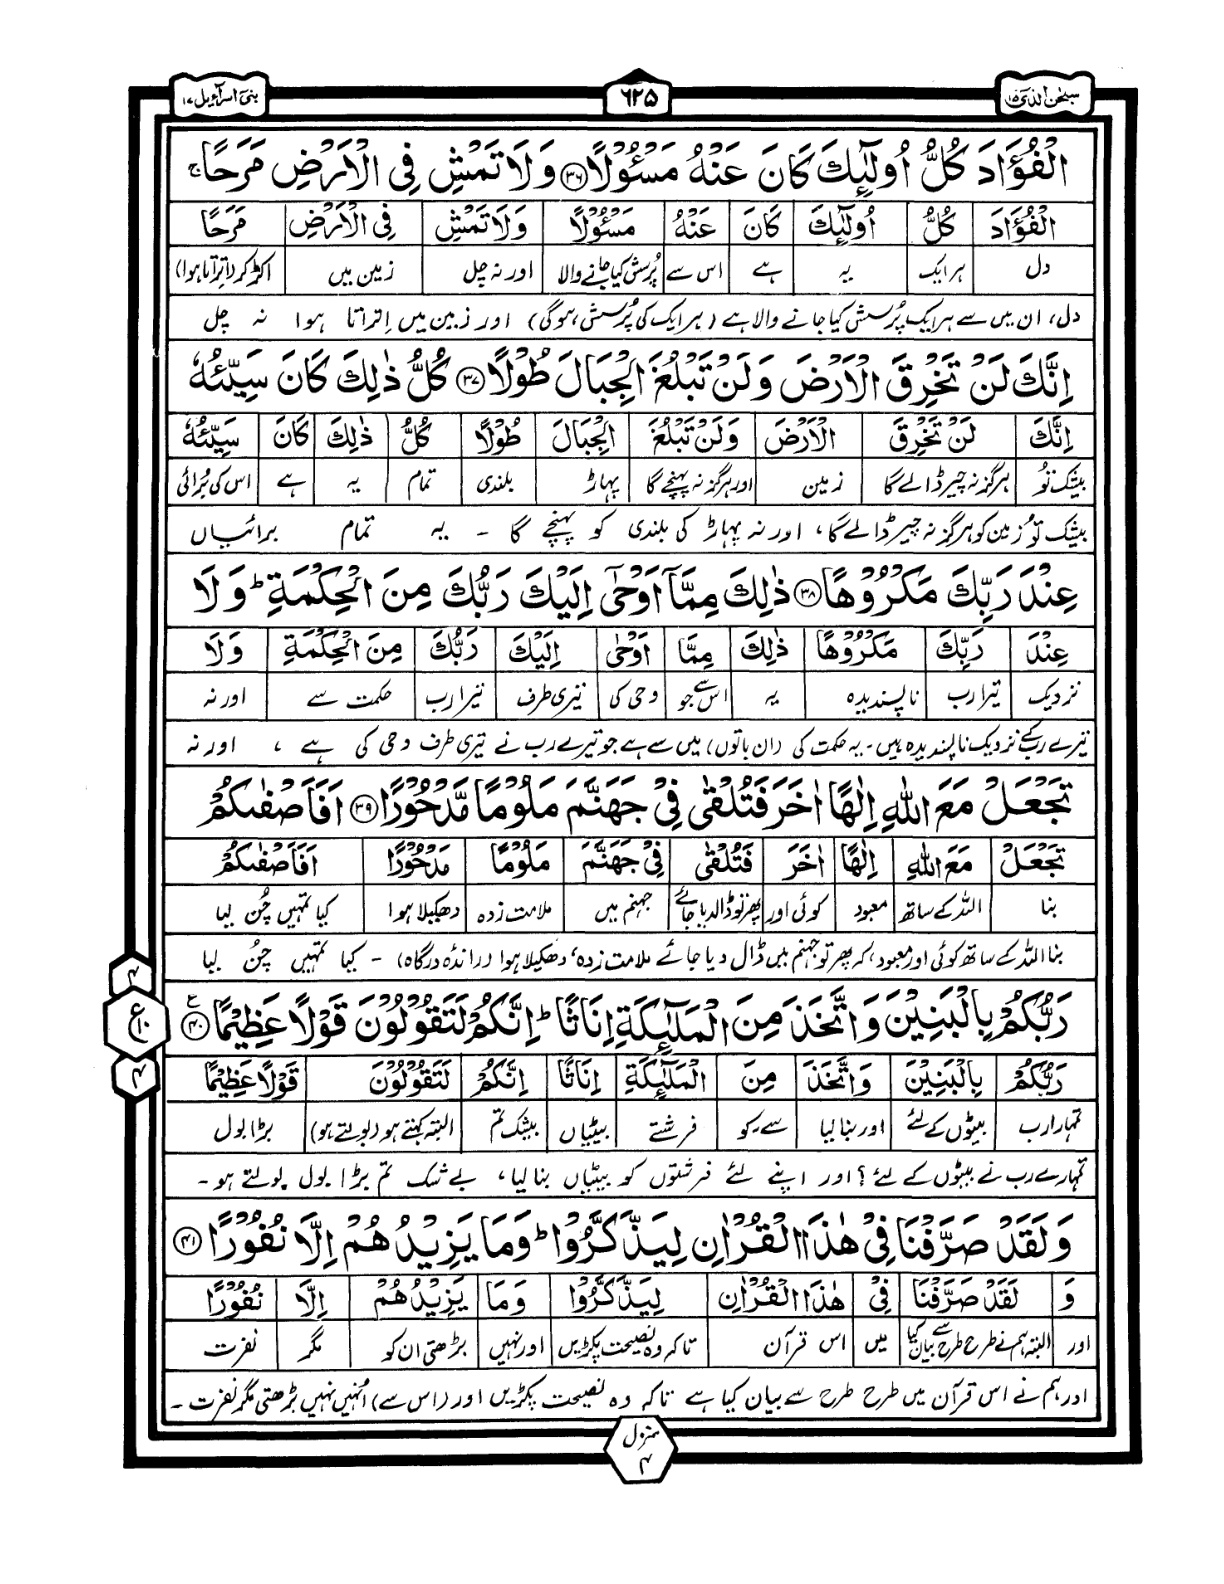 بنیٓ اسرآءیل ۱۷
۶۲۵
سبحٰن الذی ۱۵
الْفُؤَادَ كُلُّ اُولٰٓئِكَ كَانَ عَنْهُ مَسْـُٔوْلًا ۳۶ وَلَا تَمْشِ فِى الْاَرْضِ مَرَحًا ۚ
الْفُؤَادَ كُلُّ اُولٰٓئِكَ كَانَ عَنْهُ مَسْـُٔوْلًا وَلَا تَمْشِ فِى الْاَرْضِ مَرَحًا
دل ہر ایک یہ ہے اس سے پُرسش کیا جانے والا اور نہ چل زمین میں اکڑ کر (اتراتا ہوا)
دل، ان میں سے ہر ایک پُرسش کیا جانے والا ہے (ہر ایک کی پُرسش ہوگی) اور زمین میں اِتراتا ہوا نہ چل
اِنَّكَ لَنْ تَخْرِقَ الْاَرْضَ وَلَنْ تَبْلُغَ الْجِبَالَ طُوْلًا ۳۷ كُلُّ ذٰلِكَ كَانَ سَيِّئُهٗ
اِنَّكَ لَنْ تَخْرِقَ الْاَرْضَ وَلَنْ تَبْلُغَ الْجِبَالَ طُوْلًا كُلُّ ذٰلِكَ كَانَ سَيِّئُهٗ
بیشک تُو ہرگز نہ چیر ڈالے گا زمین اور ہرگز نہ پہنچے گا پہاڑ بلندی تمام یہ ہے اس کی بُرائی
بیشک تُو زمین کو ہرگز نہ چیر ڈالے گا، اور نہ پہاڑ کی بلندی کو پہنچے گا - یہ تمام برائیاں
عِنْدَ رَبِّكَ مَكْرُوْهًا ۳۸ ذٰلِكَ مِمَّآ اَوْحٰٓى اِلَيْكَ رَبُّكَ مِنَ الْحِكْمَةِ ؕ وَلَا
عِنْدَ رَبِّكَ مَكْرُوْهًا ذٰلِكَ مِمَّا اَوْحٰٓى اِلَيْكَ رَبُّكَ مِنَ الْحِكْمَةِ وَلَا
نزدیک تیرا رب ناپسندیدہ یہ اس سے جو وحی کی تیری طرف تیرا رب حکمت سے اور نہ
تیرے رب کے نزدیک ناپسندیدہ ہیں۔ یہ حکمت کی (ان باتوں) میں سے ہے جو تیرے رب نے تیری طرف وحی کی ہے ، اور نہ
تَجْعَلْ مَعَ اللّٰهِ اِلٰهًا اٰخَرَ فَتُلْقٰى فِىْ جَهَنَّمَ مَلُوْمًا مَّدْحُوْرًا ۳۹ اَفَاَصْفٰىكُمْ
تَجْعَلْ مَعَ اللّٰهِ اِلٰهًا اٰخَرَ فَتُلْقٰى فِىْ جَهَنَّمَ مَلُوْمًا مَدْحُوْرًا اَفَاَصْفٰىكُمْ
بنا اللہ کے ساتھ معبود کوئی اور پھر تو ڈالدیا جائے جہنم میں ملامت زدہ دھکیلا ہوا کیا تمہیں چُن لیا
بنا اللہ کے ساتھ کوئی اور معبود، کہ پھر تو جہنم میں ڈال دیا جائے ملامت زدہ، دھکیلا ہوا (راندہ درگاہ) - کیا تمہیں چُن لیا
۴
ع ۱۰
۴
رَبُّكُمْ بِالْبَنِيْنَ وَاتَّخَذَ مِنَ الْمَلٰٓئِكَةِ اِنَاثًا ؕ اِنَّكُمْ لَتَقُوْلُوْنَ قَوْلًا عَظِيْمًا ۴۰ ع
رَبُّكُمْ بِالْبَنِيْنَ وَاتَّخَذَ مِنَ الْمَلٰٓئِكَةِ اِنَاثًا اِنَّكُمْ لَتَقُوْلُوْنَ قَوْلًا عَظِيْمًا
تمہارا رب بیٹوں کے لئے اور بنا لیا سے۔ کو فرشتے بیٹیاں بیشک تم البتہ کہتے ہو (بولتے ہو) بڑا بول
تمہارے رب نے بیٹوں کے لئے؟ اور اپنے لئے فرشتوں کو بیٹیاں بنا لیا، بے شک تم بڑا بول بولتے ہو۔
وَلَقَدْ صَرَّفْنَا فِىْ هٰذَا الْقُرْاٰنِ لِيَذَّكَّرُوْا ؕ وَمَا يَزِيْدُهُمْ اِلَّا نُفُوْرًا ۴۱
وَ لَقَدْ صَرَّفْنَا فِىْ هٰذَا الْقُرْاٰنِ لِيَذَّكَّرُوْا وَمَا يَزِيْدُهُمْ اِلَّا نُفُوْرًا
اور البتہ ہم نے طرح طرح سے بیان کیا میں اس قرآن تاکہ وہ نصیحت پکڑیں اور نہیں بڑھتی ان کو مگر نفرت
اور ہم نے اس قرآن میں طرح طرح سے بیان کیا ہے تاکہ وہ نصیحت پکڑیں اور (اس سے) اُنہیں نہیں بڑھتی مگر نفرت -
منزل ۴